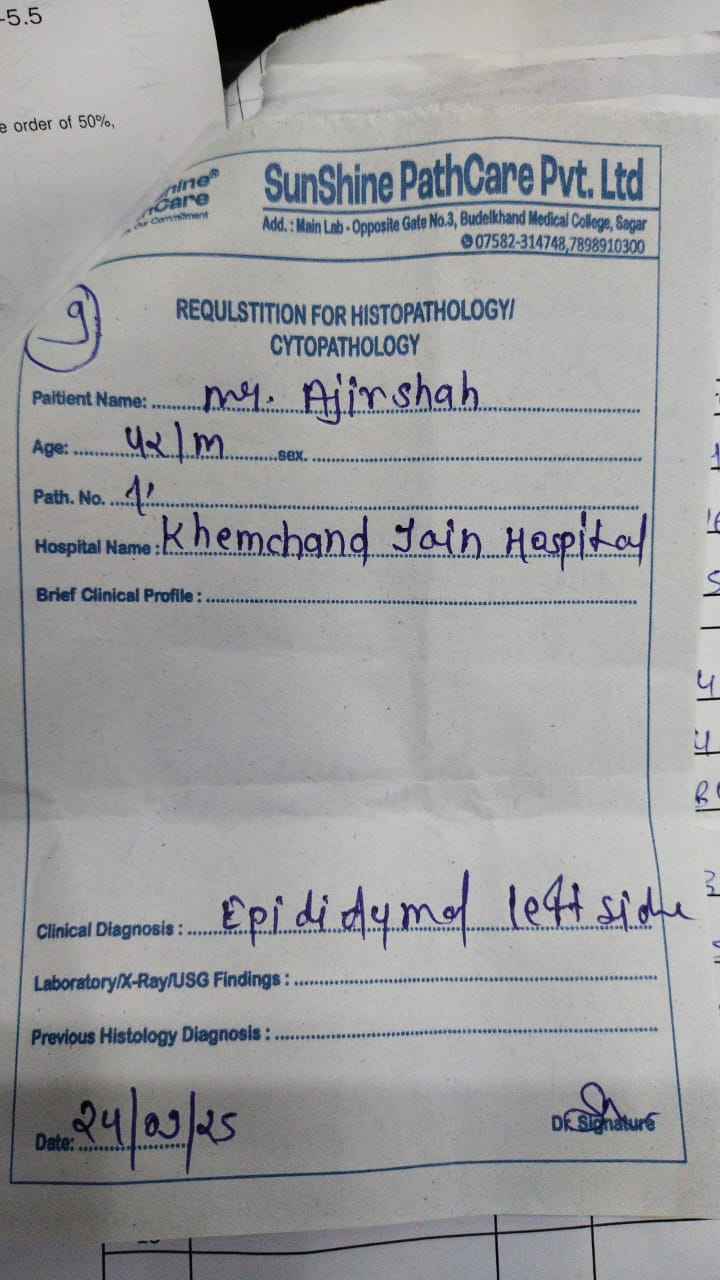 -5.5
e order of 50%,
nine®
Care
Our Commitment
SunShine PathCare Pvt. Ltd
Add. : Main Lab - Opposite Gate No.3, Budelkhand Medical College, Sagar
07582-314748,7898910300
9
REQULSTITION FOR HISTOPATHOLOGY/
CYTOPATHOLOGY
Paitient Name: Mr. Ajirshah
Age: 42/M sex.
Path. No.
Hospital Name : Khemchand Jain Hospital
Brief Clinical Profile :
Clinical Diagnosis : Epididymal left side
Laboratory/X-Ray/USG Findings :
Previous Histology Diagnosis :
Date: 24/03/25
Dr. Signature